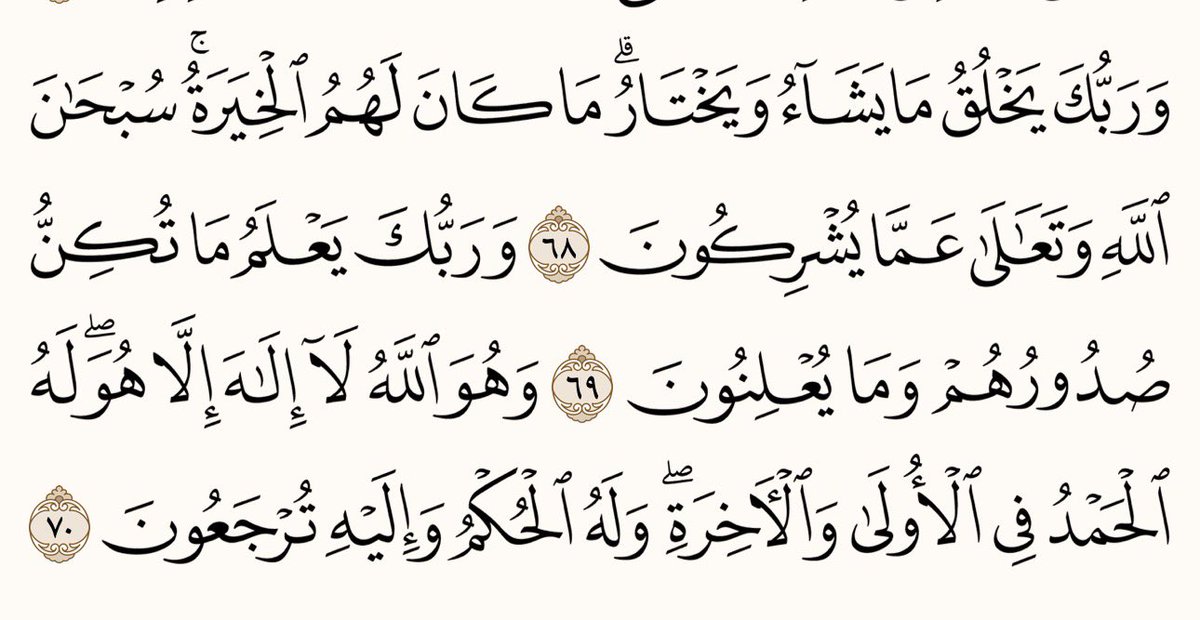 وَرَبُّكَ يَخْلُقُ مَا يَشَآءُ وَيَخْتَارُۗ مَا كَانَ لَهُمُ ٱلْخِيَرَةُۚ سُبْحَـٰنَ
ٱللَّهِ وَتَعَـٰلَىٰ عَمَّا يُشْرِكُونَ ٦٨ وَرَبُّكَ يَعْلَمُ مَا تُكِنُّ
صُدُورُهُمْ وَمَا يُعْلِنُونَ ٦٩ وَهُوَ ٱللَّهُ لَآ إِلَـٰهَ إِلَّا هُوَۖ لَهُ
ٱلْحَمْدُ فِى ٱلْأُولَىٰ وَٱلْـَٔاخِرَةِۖ وَلَهُ ٱلْحُكْمُ وَإِلَيْهِ تُرْجَعُونَ ٧٠